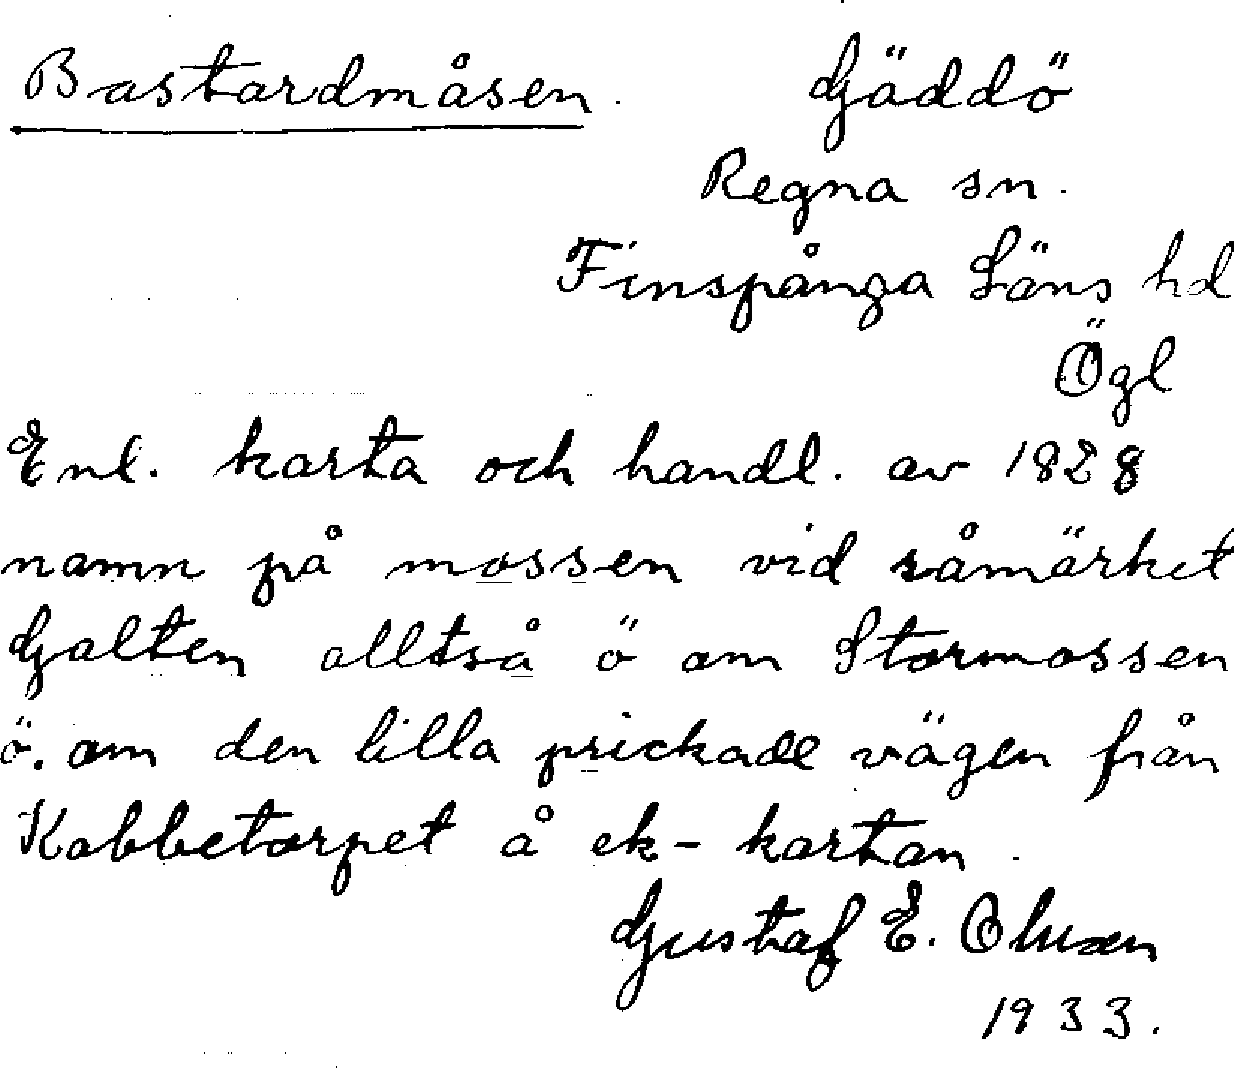 Bastardmåsen. Gäddö
Regna sn.
Finspånga Läns hd
Ögl
Enl. karta och handl. av 1828
namn på mossen vid råmärket
Galten alltså ö om Stormossen
ö. om den lilla prickade vägen från
Kabbetorpet å ek-kartan.
Gustaf E.
1933.